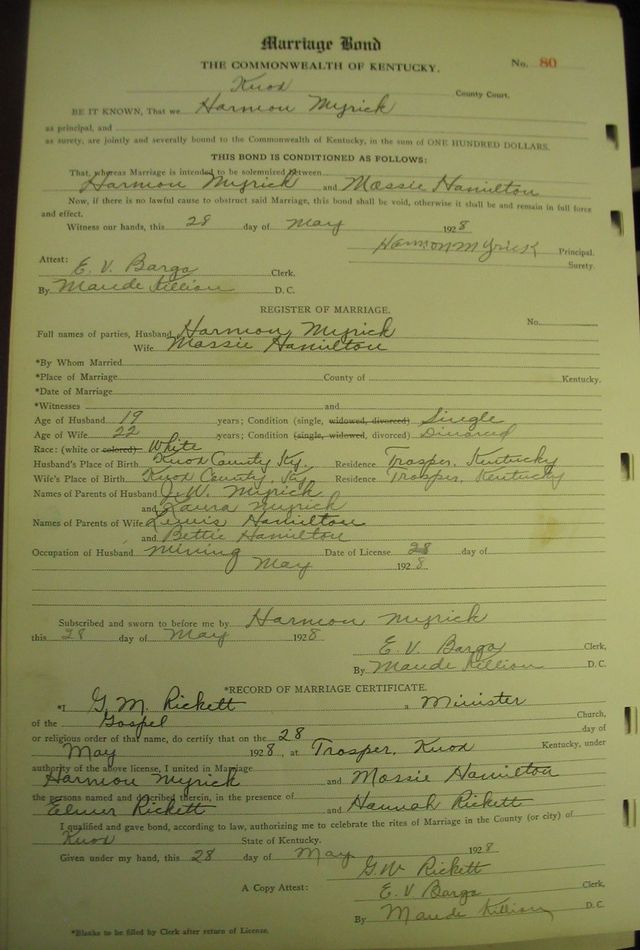 Marriage Bond
THE COMMONWEALTH OF KENTUCKY. No. 80
Knox County Court.
BE IT KNOWN, That we Harmon Myrick
as principal, and
as surety, are jointly and severally bound to the Commonwealth of Kentucky, in the sum of ONE HUNDRED DOLLARS.
THIS BOND IS CONDITIONED AS FOLLOWS:
That, whereas Marriage is intended to be solemnized between
Harmon Myrick and Massie Hamilton
Now, if there is no lawful cause to obstruct said Marriage, this bond shall be void, otherwise it shall be and remain in full force
and effect.
Witness our hands, this 28 day of May 1928
Harmon Myrick Principal.
Surety.
Attest:
E. V. Bargo Clerk,
By Maude Killion D. C.
REGISTER OF MARRIAGE.
Full names of parties, Husband Harmon Myrick No.
Wife Massie Hamilton
*By Whom Married
*Place of Marriage County of Kentucky.
*Date of Marriage
*Witnesses and
Age of Husband 19 years; Condition (single, widowed, divorced) Single
Age of Wife 22 years; Condition (single, widowed, divorced) Divorced
Race: (white or colored) White
Husband's Place of Birth Knox County Ky. Residence Trosper, Kentucky
Wife's Place of Birth Knox County, Ky Residence Trosper, Kentucky
Names of Parents of Husband J. W. Myrick
and Laura Myrick
Names of Parents of Wife Lewis Hamilton
and Bettie Hamilton
Occupation of Husband Mining Date of License 28 day of
May 1928.
Subscribed and sworn to before me by Harmon Myrick
this 28 day of May 1928
E. V. Bargo Clerk,
By Maude Killion D. C.
*RECORD OF MARRIAGE CERTIFICATE.
*I G. M. Rickett a Minister
of the Gospel Church,
or religious order of that name, do certify that on the 28 day of
May 1928, at Trosper, Knox Kentucky, under
authority of the above license, I united in Marriage
Harmon Myrick and Massie Hamilton
the persons named and described therein, in the presence of
Elmer Rickett and Hannah Rickett
I qualified and gave bond, according to law, authorizing me to celebrate the rites of Marriage in the County (or city) of
Knox State of Kentucky.
Given under my hand, this 28 day of May 1928
G. W. Rickett
A Copy Attest: E. V. Bargo Clerk,
By Maude Killion D. C.
*Blanks to be filled by Clerk after return of License.